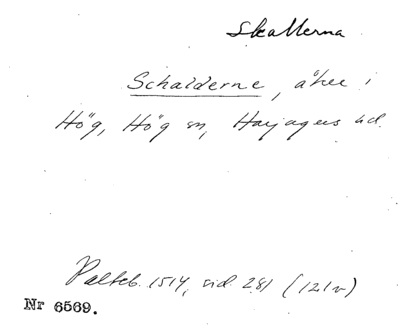 Skallerna
Schalderne, åker i
Hög, Hög sn, Harjagers hd.
Palteb. 1514, sid 281 (121v)
Nr 6569.